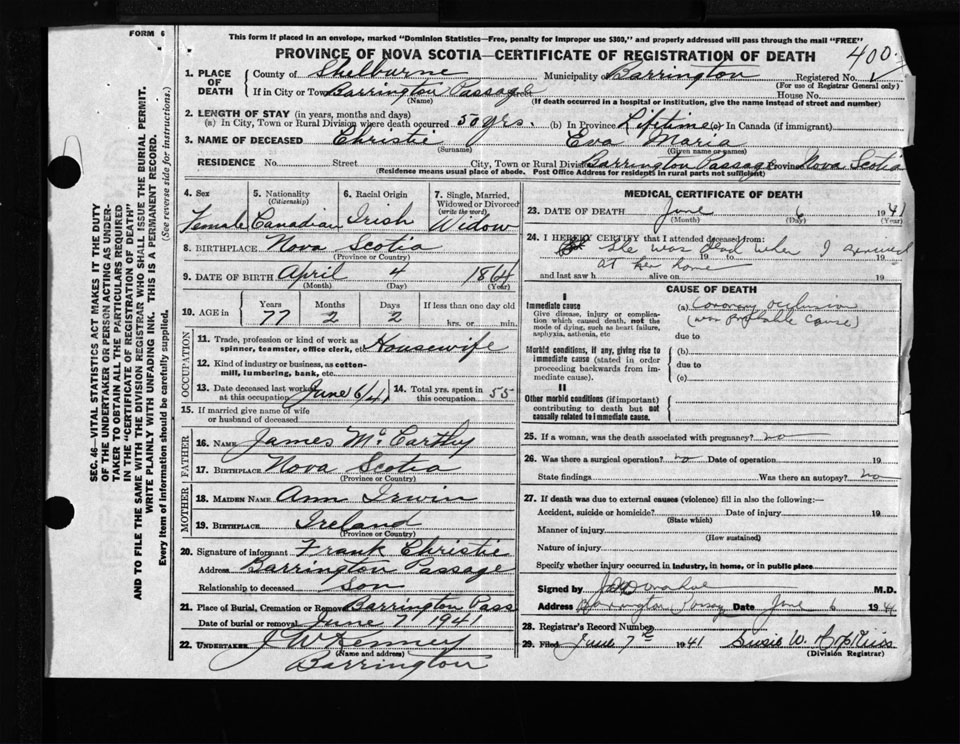 FORM 6
This form if placed in an envelope, marked "Dominion Statistics—Free, penalty for improper use $300," and properly addressed will pass through the mail "FREE"
PROVINCE OF NOVA SCOTIA—CERTIFICATE OF REGISTRATION OF DEATH
400
1. PLACE OF DEATH
County of Shelburne Municipality Barrington Registered No.
(For use of Registrar General only)
If in City or Town Barrington Passage Street House No.
(Name) (If death occurred in a hospital or institution, give the name instead of street and number)
2. LENGTH OF STAY (in years, months and days)
(a) In City, Town or Rural Division where death occurred 50 yrs. (b) In Province Lifetime (c) In Canada (if immigrant)
3. NAME OF DECEASED Christie Eva Maria
(Surname) (Given name or names)
RESIDENCE No. Street City, Town or Rural Division Barrington Passage Province Nova Scotia
(Residence means usual place of abode. Post Office Address for residents in rural parts not sufficient)
4. Sex
Female
5. Nationality
(Citizenship)
Canadian
6. Racial Origin
Irish
7. Single, Married, Widowed or Divorced
(write the word)
Widow
8. BIRTHPLACE Nova Scotia
(Province or Country)
9. DATE OF BIRTH April 4 1864
(Month) (Day) (Year)
10. AGE in
Years Months Days If less than one day old
77 2 2 hrs. or min.
OCCUPATION
11. Trade, profession or kind of work as spinner, teamster, office clerk, etc. Housewife
12. Kind of industry or business, as cotton-mill, lumbering, bank, etc.
13. Date deceased last worked at this occupation June 6/41
14. Total yrs. spent in this occupation 55
15. If married give name of wife or husband of deceased
FATHER
16. NAME James McCarthy
17. BIRTHPLACE Nova Scotia
(Province or Country)
MOTHER
18. MAIDEN NAME Ann Irwin
19. BIRTHPLACE Ireland
(Province or Country)
20. Signature of informant Frank Christie
Address Barrington Passage
Relationship to deceased Son
21. Place of Burial, Cremation or Removal Barrington Pass
Date of burial or removal June 7 1941
22. UNDERTAKER J W Kenney
(Name and address)
Barrington
MEDICAL CERTIFICATE OF DEATH
23. DATE OF DEATH June 6 1941
(Month) (Day) (Year)
24. I HEREBY CERTIFY that I attended deceased from:
She was dead when I arrived
19 to 19
at her home
and last saw h alive on 19
CAUSE OF DEATH
I
Immediate cause
Give disease, injury or complication which caused death, not the mode of dying, such as heart failure, asphyxia, asthenia, etc
(a) Coronary occlusion
(was probable cause)
due to
Morbid conditions, if any, giving rise to immediate cause (stated in order proceeding backwards from immediate cause).
(b)
due to
(c)
II
Other morbid conditions (if important) contributing to death but not causally related to immediate cause.
25. If a woman, was the death associated with pregnancy? no
26. Was there a surgical operation? no Date of operation 19
State findings Was there an autopsy? no
27. If death was due to external causes (violence) fill in also the following:—
Accident, suicide or homicide? Date of injury 19
(State which)
Manner of injury
(How sustained)
Nature of injury
Specify whether injury occurred in industry, in home, or in public place
Signed by M.D.
Address Barrington Passage Date June 6 1941
28. Registrar's Record Number
29. Filed June 7th 1941 Susie W. Hopkins
(Division Registrar)
SEC. 46—VITAL STATISTICS ACT MAKES IT THE DUTY
OF THE UNDERTAKER OR PERSON ACTING AS UNDER-
TAKER TO OBTAIN ALL THE PARTICULARS REQUIRED
IN THE "CERTIFICATE OF REGISTRATION OF DEATH"
AND TO FILE THE SAME WITH THE DIVISION REGISTRAR WHO SHALL ISSUE THE BURIAL PERMIT.
WRITE PLAINLY WITH UNFADING INK. THIS IS A PERMANENT RECORD.
Every item of Information should be carefully supplied. (See reverse side for instructions.)